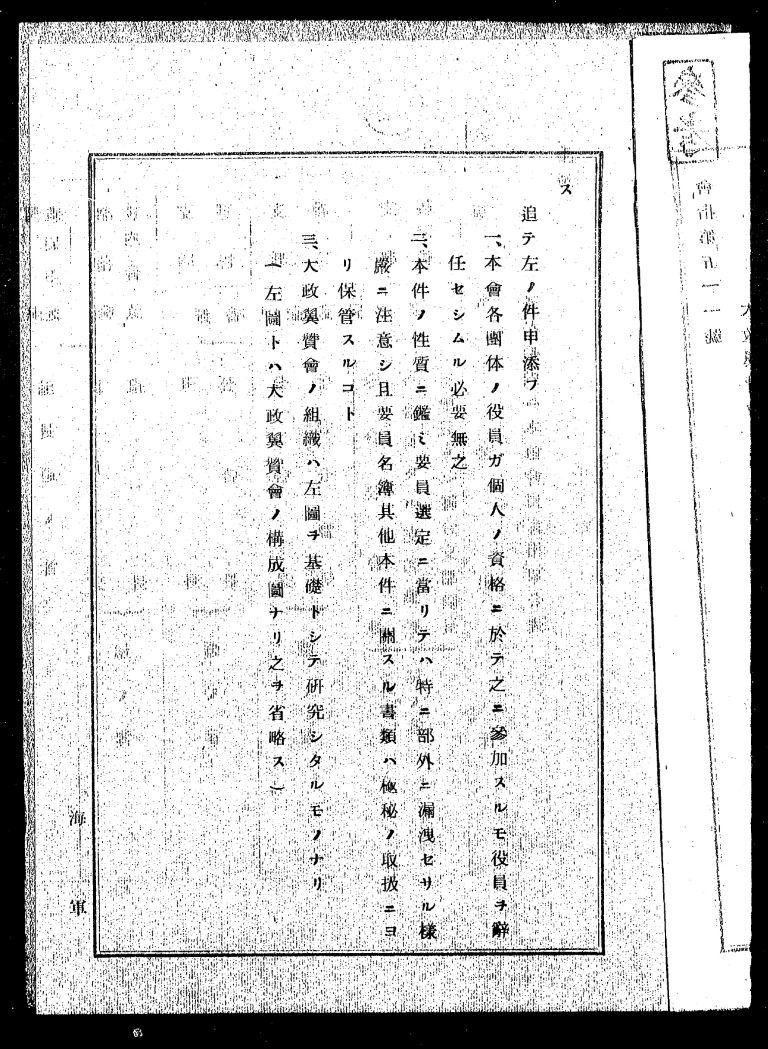 參考
會指第五一一號
ス
追テ左ノ件申添フ
一、本會各團体ノ役員ガ個人ノ資格ニ於テ之ニ參加スルモ役員ヲ辭
任セシムル必要無之
二、本件ノ性質ニ鑑ミ要員選定ニ當リテハ特ニ部外ニ漏洩セサル樣
嚴ニ注意シ且要員名簿其他本件ニ關スル書類ハ極秘ノ取扱ニヨ
リ保管スルコト
三、大政翼賛會ノ組織ハ左圖ヲ基礎トシテ研究シタルモノナリ
（左圖トハ大政翼賛會ノ構成圖ナリ之ヲ省略ス）
海軍